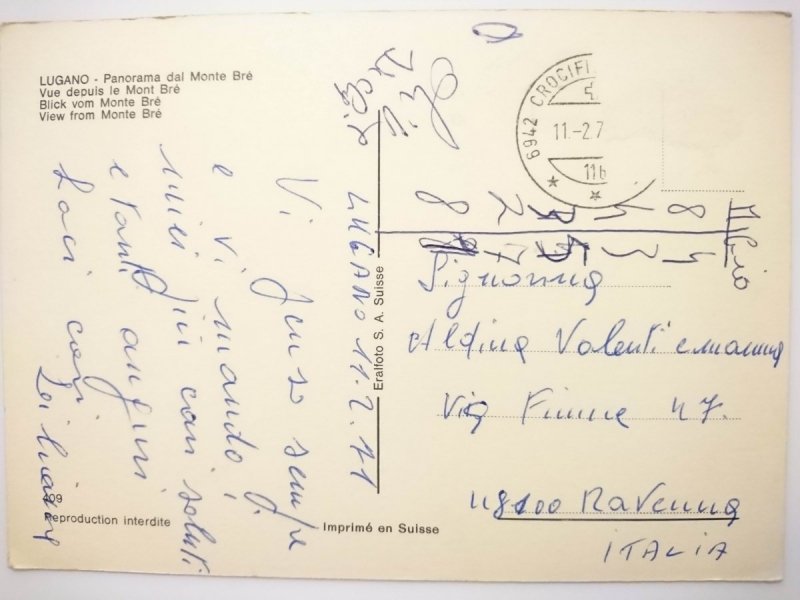 LUGANO - Panorama dal Monte Bré
Vue depuis le Mont Bré
Blick vom Monte Bré
View from Monte Bré
LUGANO 11.2.71
Vi penso sempre
e vi mando i
miei più cari saluti
e tanti auguri
Baci cari
6942 CROCIFI
11.-2.7
11b
Signorina
Aldina Valenti e mamma
Via Fiume 47.
48100 Ravenna
ITALIA
Eralfoto S. A. Suisse
409
Reproduction interdite
Imprimé en Suisse